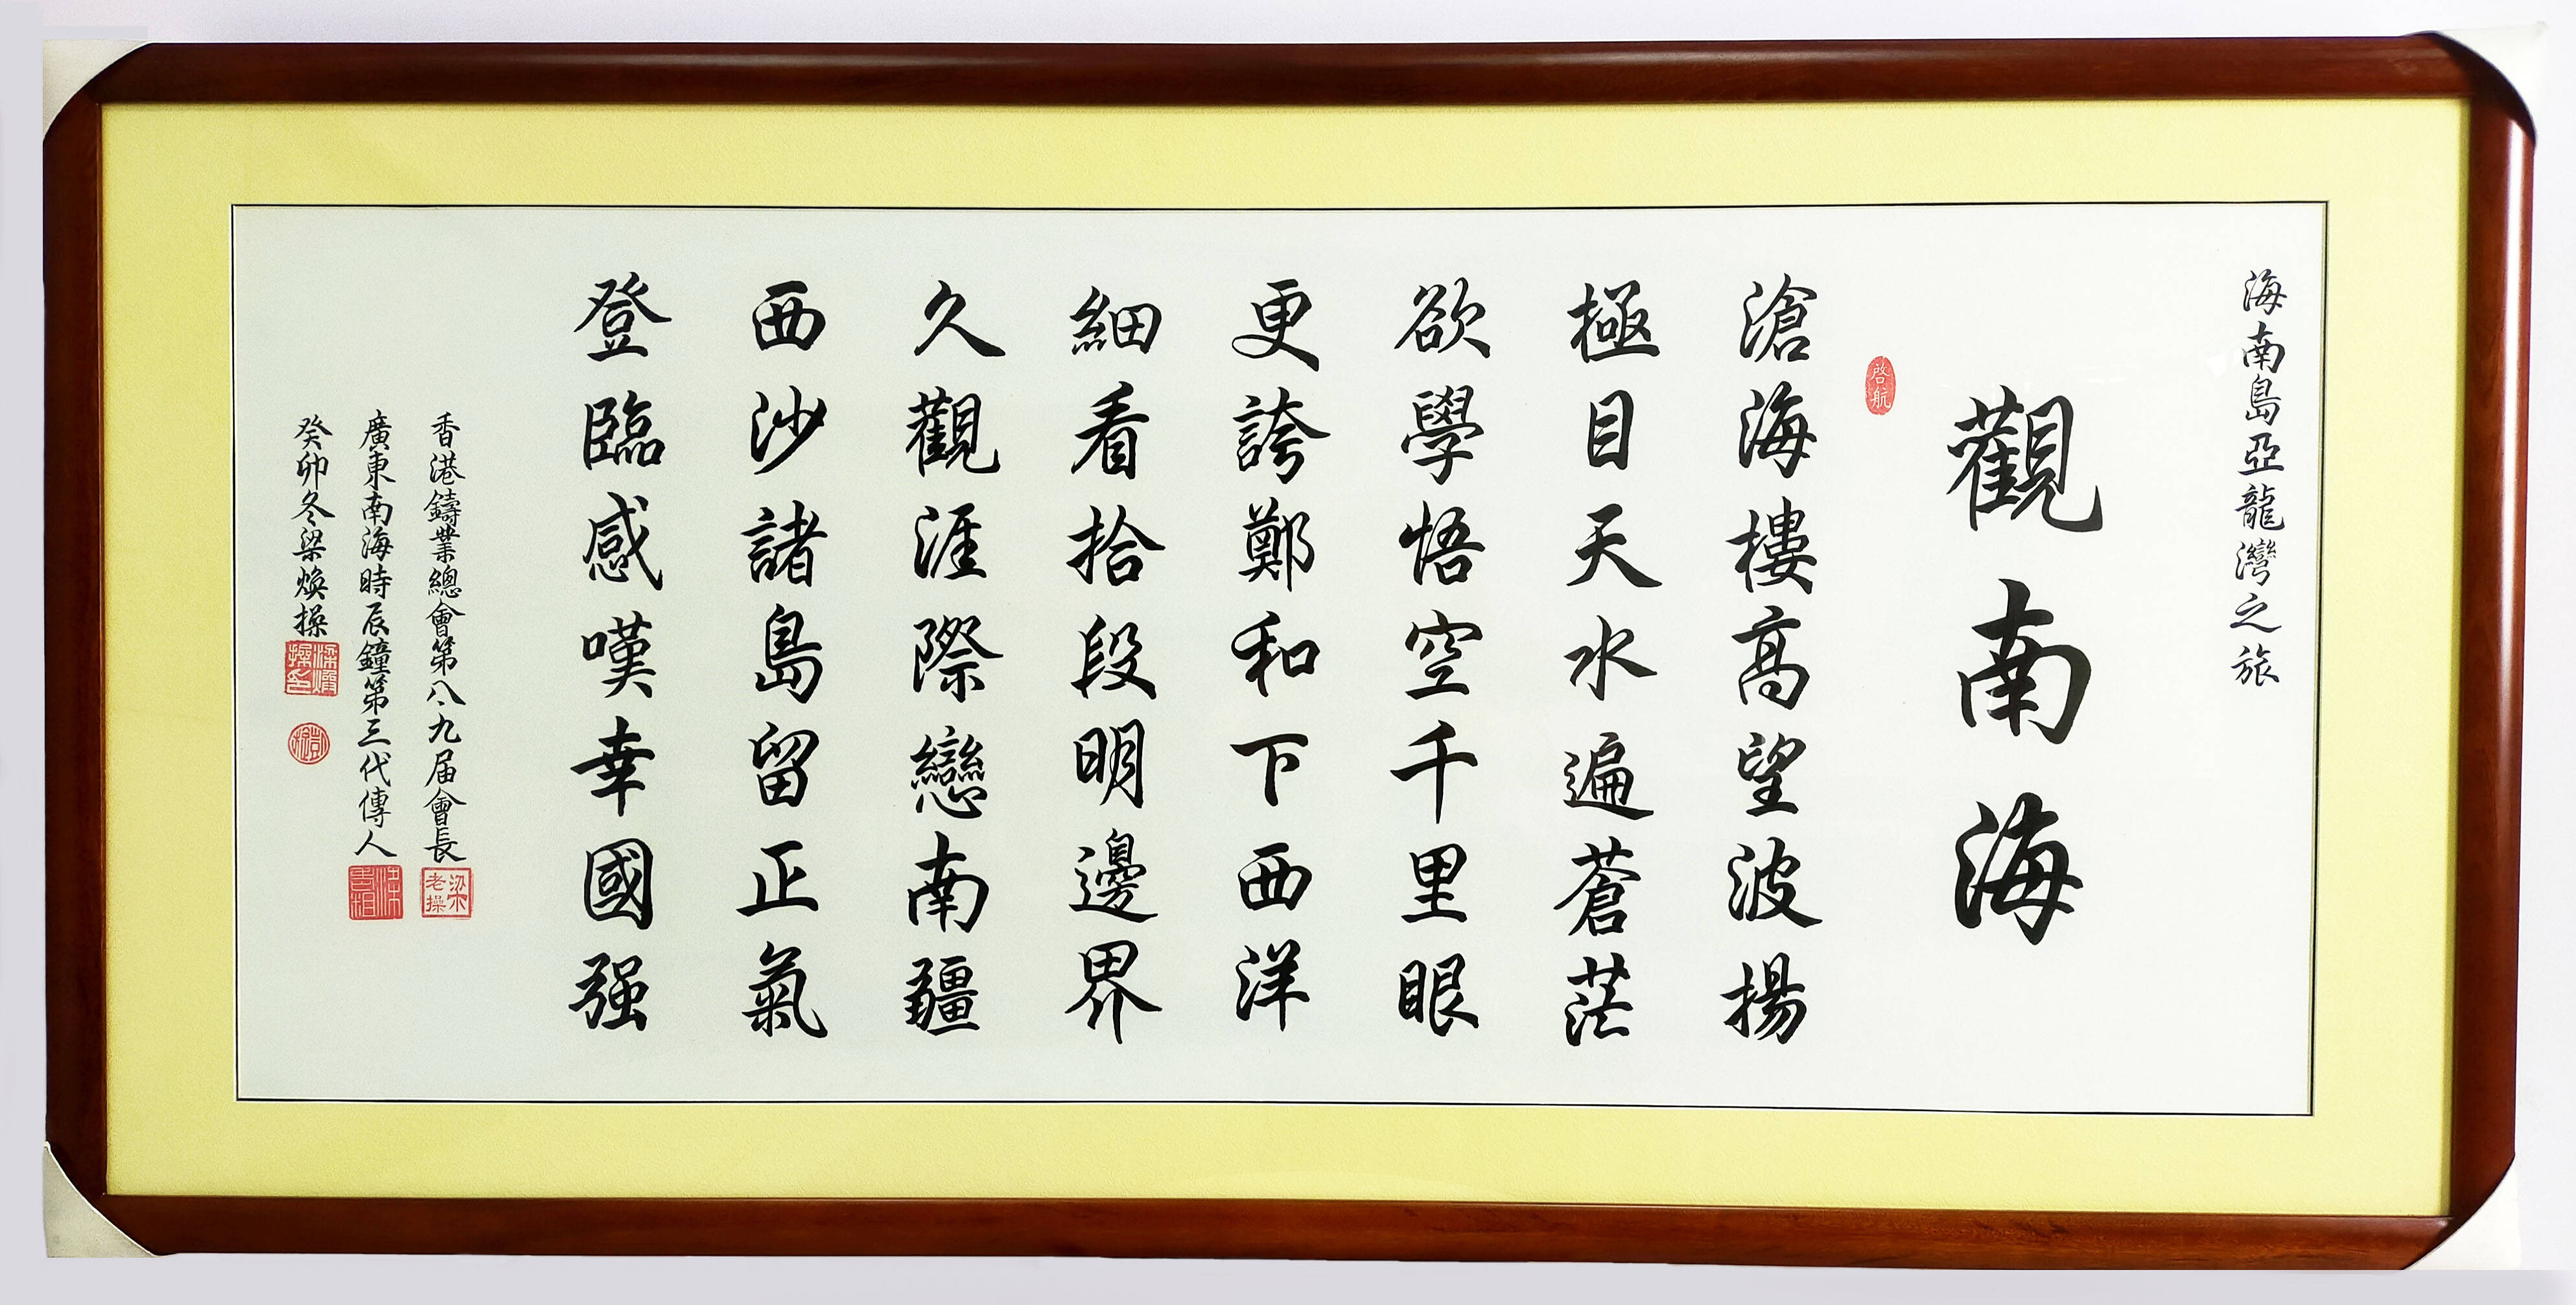 海南島亞龍灣之旅
觀南海
啓航
滄海樓高望波揚
極目天水遍蒼茫
欲學悟空千里眼
更誇鄭和下西洋
細看拾段明邊界
久觀涯際戀南疆
西沙諸島留正氣
登臨感嘆幸國强
香港鑄業總會第八九届會長
廣東南海時辰鐘第三代傳人
癸卯冬梁煥操